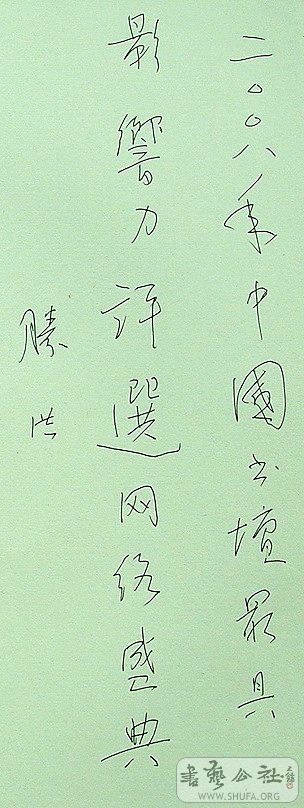 二〇〇八年中國书壇最具
影響力评選网络盛典
滕洪
書藝公社
WWW.SHUFA.ORG